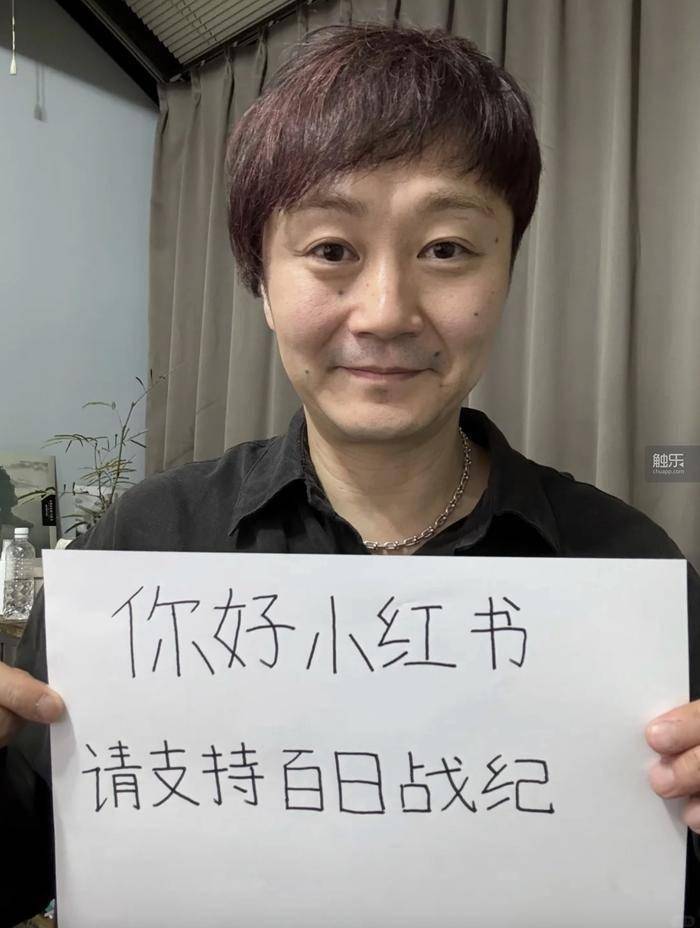 触乐
chuapp.com
你好小红书
请支持百日战纪